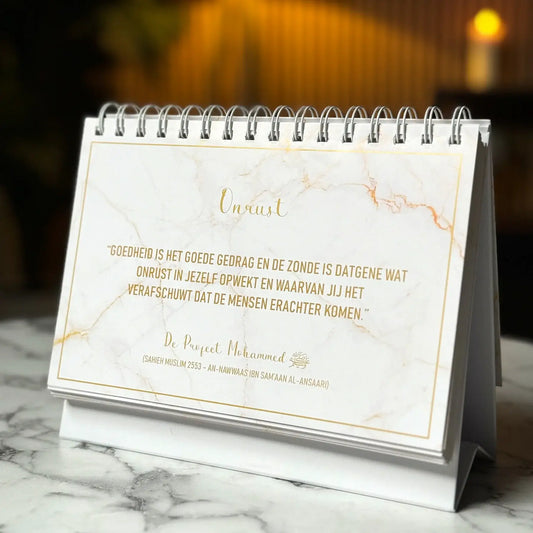 Onrust
“GOEDHEID IS HET GOEDE GEDRAG EN DE ZONDE IS DATGENE WAT
ONRUST IN JEZELF OPWEKT EN WAARVAN JIJ HET
VERAFSCHUWT DAT DE MENSEN ERACHTER KOMEN.”
De Profeet Mohammed ﷺ
(SAHIEH MUSLIM 2553 - AN-NAWWAAS IBN SAM'AAN AL-ANSAARI)